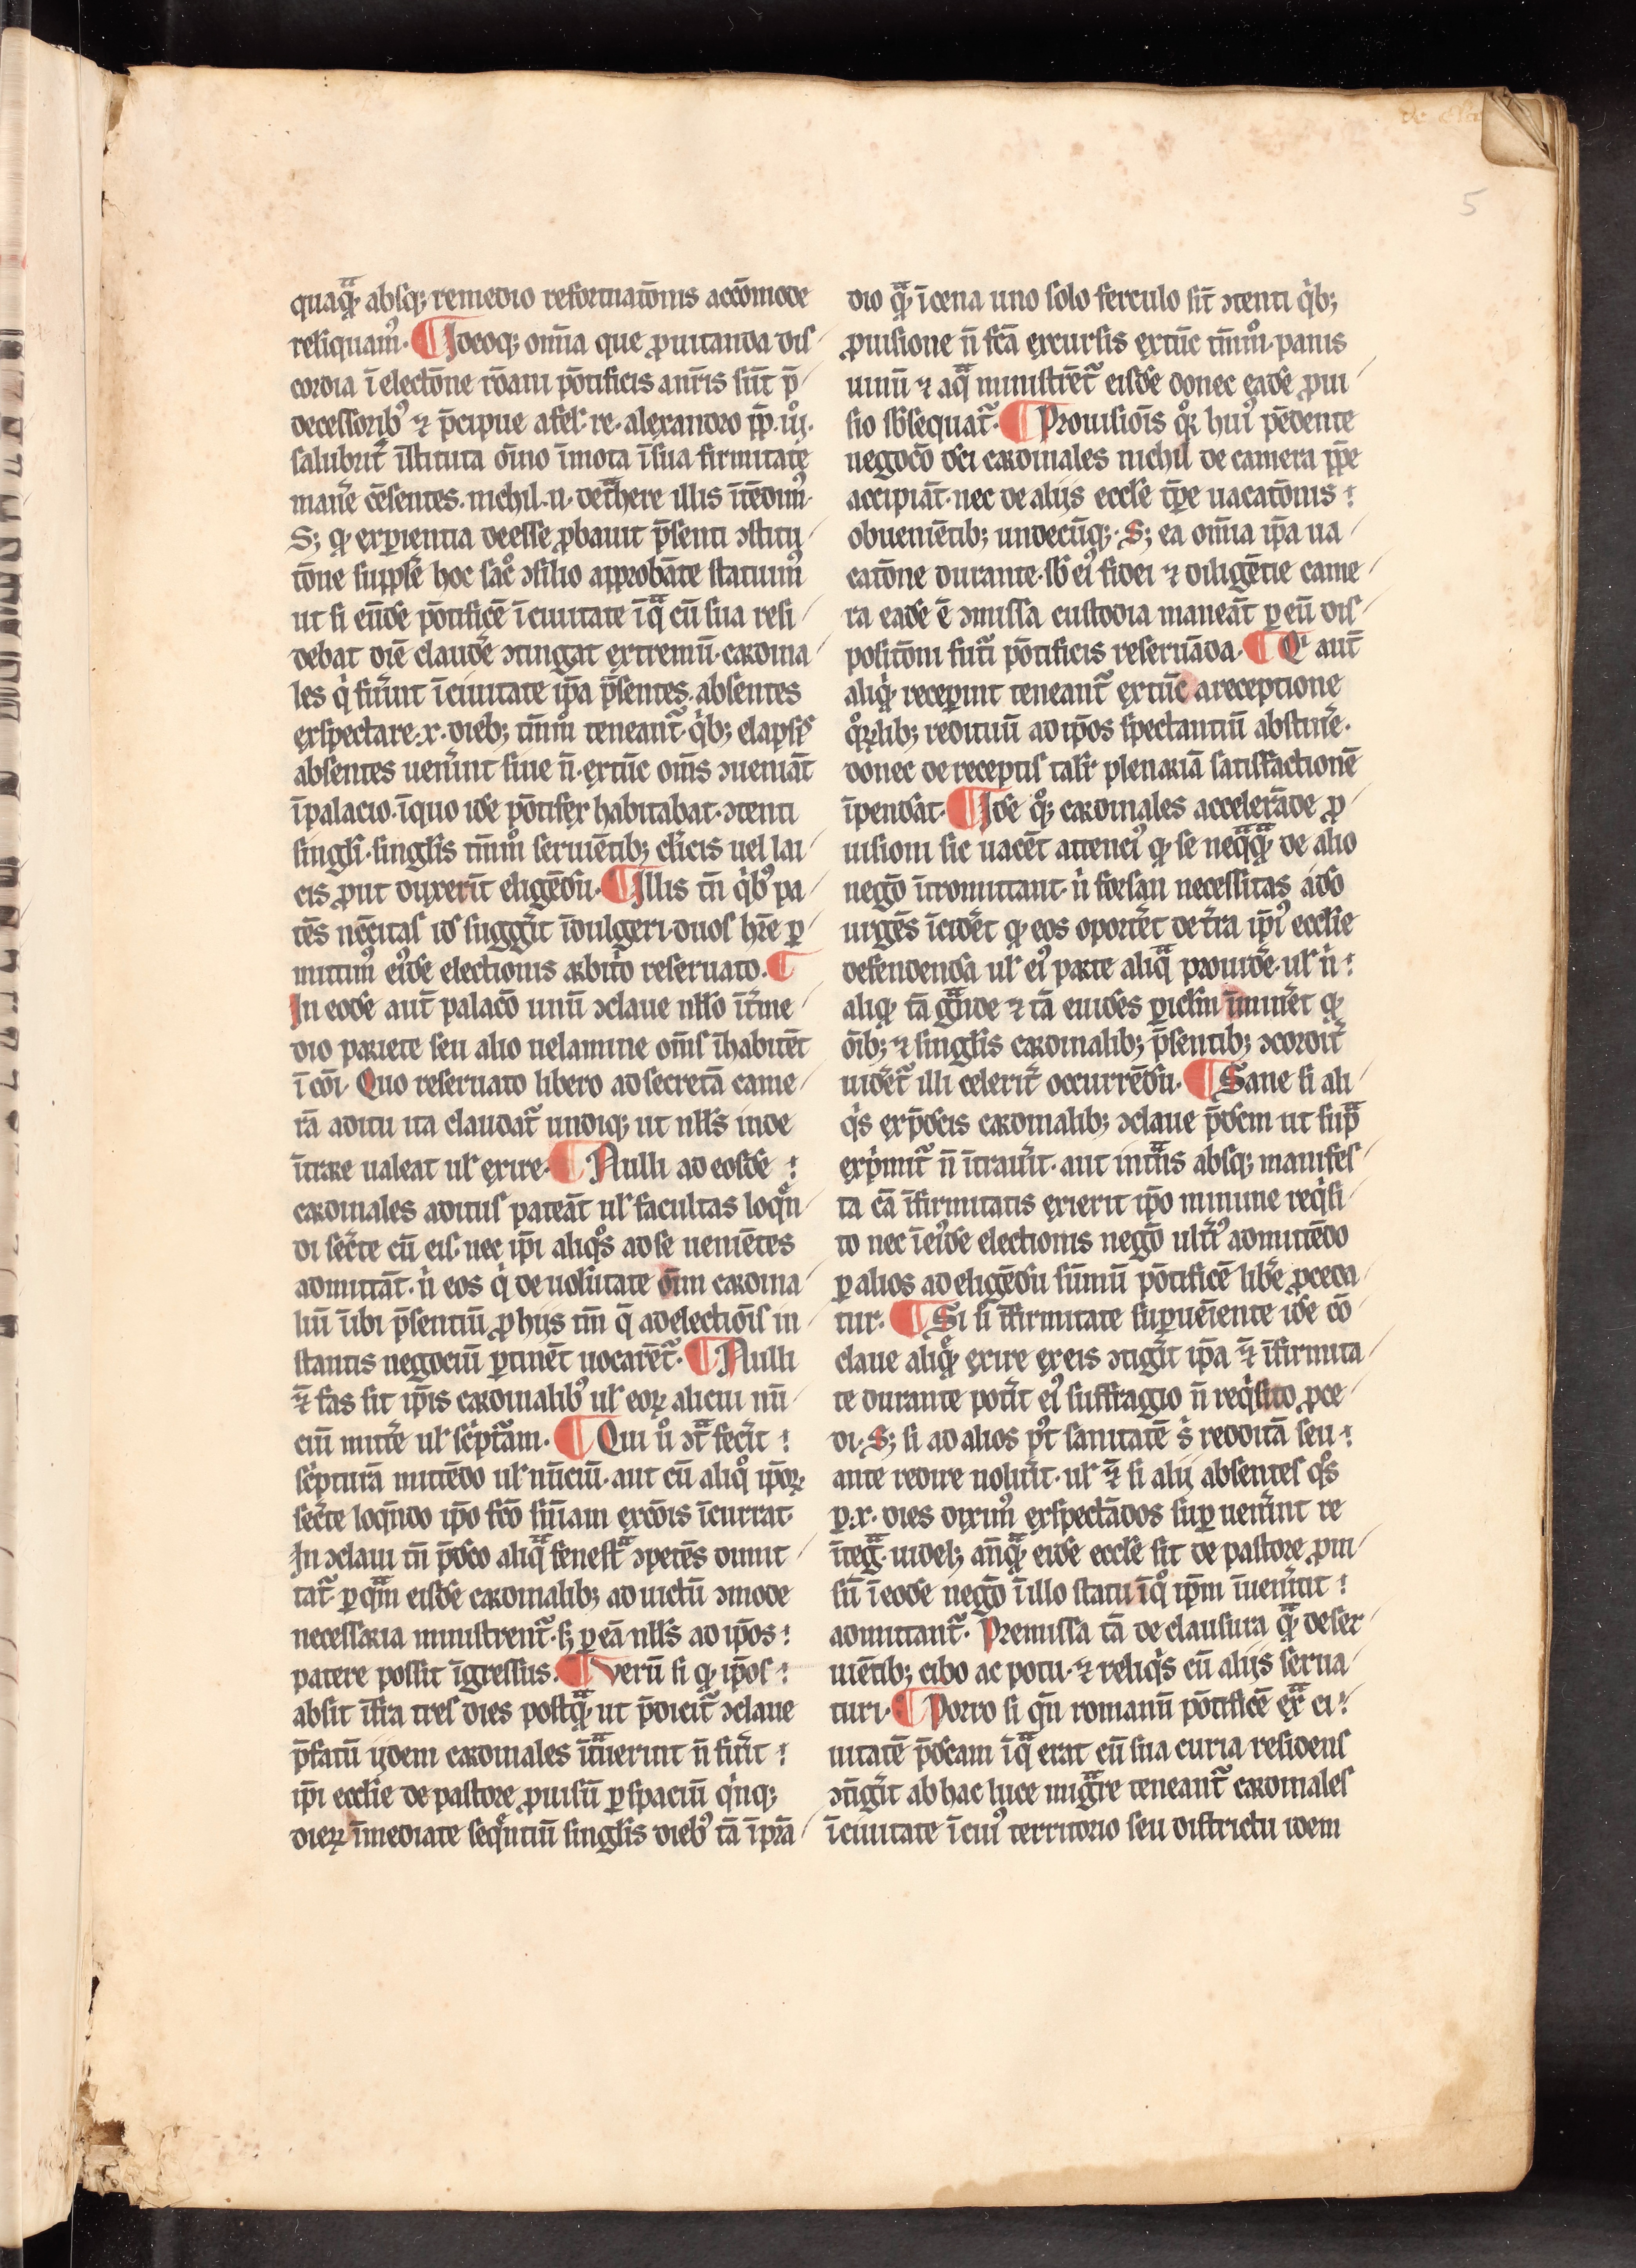 de elec
5
quaq̄ꝫ absqꝫ remedio reformatōnis accōmode
reliquamꝰ. ¶ Ideoqꝫ om̄ia que ꝓ uitanda dis
cordia ī electōne rōani pōtificis anr̄is sūt p̄
decessoribꝰ ⁊ p̄cipue a fel. re. alexandro pp̄. iij.
salubrit̄ īstituta om̄ino īmota ī sua firmitate
maner̄e cēsentes. nichil. n. det̾here illis ītēdimꝰ.
Sꝫ qꝫ exp̱ientia deesse ꝓbauit p̄senti ↄstitu
tōne supplē hoc sac̊ ↄsilio approbāte statuimꝰ
ut si eūdē pōtificē ī ciuitate ī qᵃ cū sua resi
debat diē claudēr ↄtingat extremū. cardina
les qⁱ fuer̄int ī ciuitate ip̄a p̄sentes. absentes
exspectare. x. diebꝫ tm̄m̊ teneant᷑. qⁱbꝫ elapsis
absentes uenerint siue n̄. extūc om̄s ↄueniāt
ī palacio. ī quo idē pōtifex habitabat. ↄtenti
singl̄i. singl̄is tm̄m̊ seruiētibꝫ cl̄icis uel lai
cis ꝓut duxerīt eligēdū. ¶ Illis tn̄ qⁱbꝰ pa
tēs nēcitas id suggerit īdulgeri. duos hr̄e ꝑ
mittimꝰ eiꝰdē electionis arbitrio reseruato. ¶
In eodē aut̄ palacō unū ↄclaue nll̄o īterme
dio pariete seu alio uelamine om̄s īhabitēt
ī cōi. Quo reseruato libero ad secretā came
rā aditu ita claudat᷑ undiqꝫ ut nll̄s inde
ītrare ualeat ul̄ exire. ¶ Nulli ad eosdē
cardinales aditus pateāt ul̄ facultas loqn̄
di secr̄te cū eis. nec ip̄i aliqͦs ad se ueniētes
admittāt. nⁱ eos qⁱ de uolūtate om̄n cardina
liū ūbi p̄sentiū ꝓ hijs tm̄ q̄ ad electiōis in
stantis negociū ꝑtinēt uocarēt᷑. ¶ Nulli
⁊̄ fas sit ip̄is cardinalibꝰ ul̄ eoꝝ alicui nū
ciū mittēr ul̄ scⁱptām. ¶ Qui ů ↄtᵃ fecⁱt
scⁱpturā mittēdo ul̄ nūciū. aut cū aliqͦ ip̄oꝝ
secr̄te loqn̄do ip̄o fcō sn̄iam excōis īcurrat.
In ↄclaui tn̄ p̄dco aliqᵃ fenestᵃ ↄpetēs dimit
tat᷑. ꝑ qᵃm eisdē cardinalibꝫ ad uictū ↄmode
necessaria ministrent᷑. sꝫ ꝑ eā nll̄s ad ip̄os
patere possit īgressus. ¶ Verū si qꝫ ip̄os
absit īfra tres dies postqᵃꝫ ut p̄dicit᷑ ↄclaue
p̄fatū ijdem cardinales ītᵃuerint n̄ fuer̄it
ip̄i eccl̄ie de pastore ꝓuisū ꝑ spaciū qⁱnqꝫ
dieꝝ īmediate seqn̄tiū singl̄is diebꝰ tā ī prā
dio qᵃꝫ ī cena uno solo ferculo sīt ↄtenti qⁱbꝫ
ꝓuisione n̄ fcā excursis extūc tm̄m̊. panis
uinū ⁊ aqᵃ ministrēt᷑ eisdē donec eadē ꝓui
sio sb̄sequat᷑. ¶ Prouisiōis qͦꝝ huiꝰ pēdente
negocō dci cardinales nichil de camera pp̄e
accipiāt. nec de alijs eccl̄e tp̄e uacatōnis
obueniētibꝫ undecūqꝫ. Sꝫ ea om̄ia ip̄a ua
catōne durante. sb̄ eiꝰ fidei ⁊ diligētie came
ra eadē ē ↄmissa custodia maneāt ꝑ eū dis
positōni futⁱ pōtificis reseruāda. ¶ Qⁱ aut̄
aliqꝫ receperint teneant᷑ extūc a receptione
qͦꝝlibꝫ redituū ad ip̄os spectantiū abstiner̄e.
donec de receptis talr̄ plenariā satisfactionē
īpendāt. ¶ Idē qͦqꝫ cardinales accelerāde ꝓ
uisioni sic uacēt attenciꝰ qꝫ se neqᵃqᵃꝫ de alio
negō ītromittant. nⁱ forsan necessitas adō
urgēs īcidēt qꝫ eos oportēt de tr̄ra ip̄iꝰ eccl̄ie
defendenda ul̄ eiꝰ parte aliqᵃ prouidēr. ul̄ nⁱ
aliqꝫ tā gᵃnde ⁊ tā euidēs ꝑicl̄m īmineret qꝫ
ōibꝫ ⁊ singl̄is cardinalibꝫ p̄sentibꝫ ↄcordit̄
uidēt᷑ illi celerit̄ occurrēdū. ¶ Sane si ali
qⁱs ex p̄dcis cardinalibꝫ ↄclaue p̄dcm ut supᵃ
exp̄mit᷑ n̄ ītrauer̄it. aut intᵃns absqꝫ manifes
ta cā īfirmitatis exierit ip̄o minime reqⁱsi
to nec ī eiꝰdē electionis negō ult̄iꝰ admittēdo
ꝑ alios ad eligēdū sūmū pōtificē libēr ꝓceda
tur. ¶ Si si īfirmitate suꝑueniente idē cō
claue aliqͦꝫ exire ex eis ↄtigⁱt ip̄a ⁊̄ īfirmita
te durante poterit eiꝰ suffragio n̄ reqⁱsito ꝓce
di. Sꝫ si ad alios pꝰt sanitatē sⁱ redditā seu
ante redire uoluerit. ul̄ ⁊̄ si alij absentes qͦs
ꝑ. x. dies diximꝰ exspectādos suꝑuener̄int re
īteg̊. uidelꝫ anqᵃꝫ eidē eccl̄e sit de pastore ꝓui
sū ī eodē negō ī illo statu ī qͦ ip̄m īuener̄int
admittant᷑. Premissa tā de clausura qᵃꝫ de ser
uiētibꝫ cibo ac potu. ⁊ reliqⁱs cū alijs serua
turi. ¶ Porro si qn̄ romanū pōtificē exᵃ ci
uitatē p̄dcam ī qᵃ erat cū sua curia residens
ↄtigⁱt ab hac luce migᵃre teneant᷑ cardinales
ī ciuitate ī cuiꝰ territorio seu districtu idem